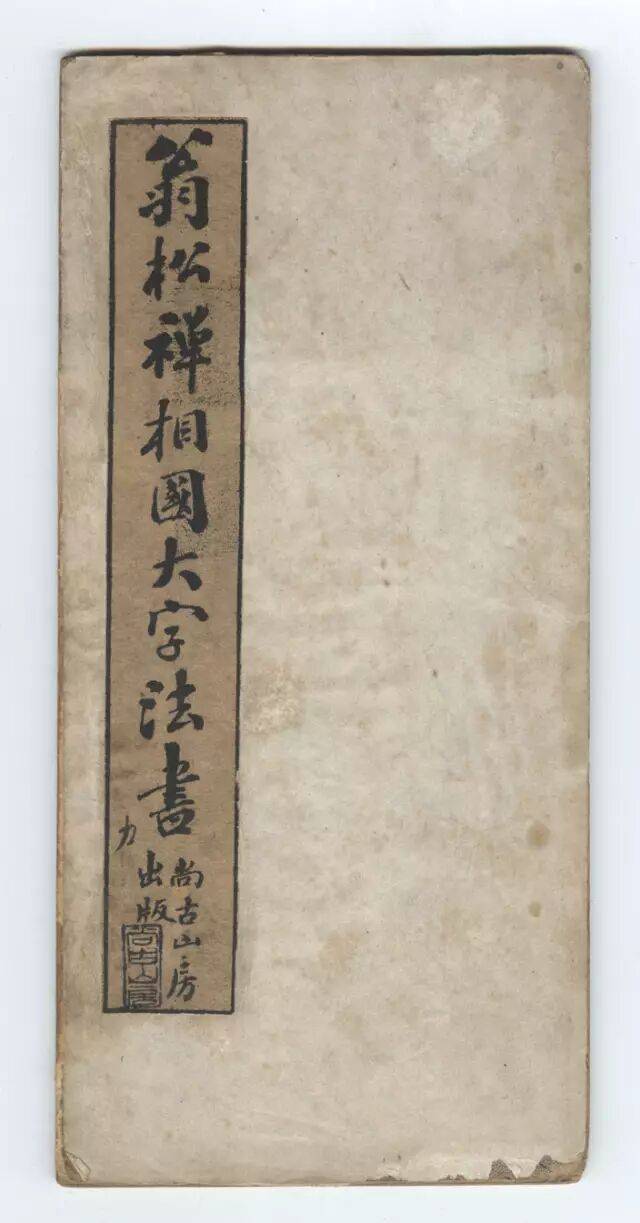 翁松禅相國大字法書
尚古山房
出版
尚古山房
力